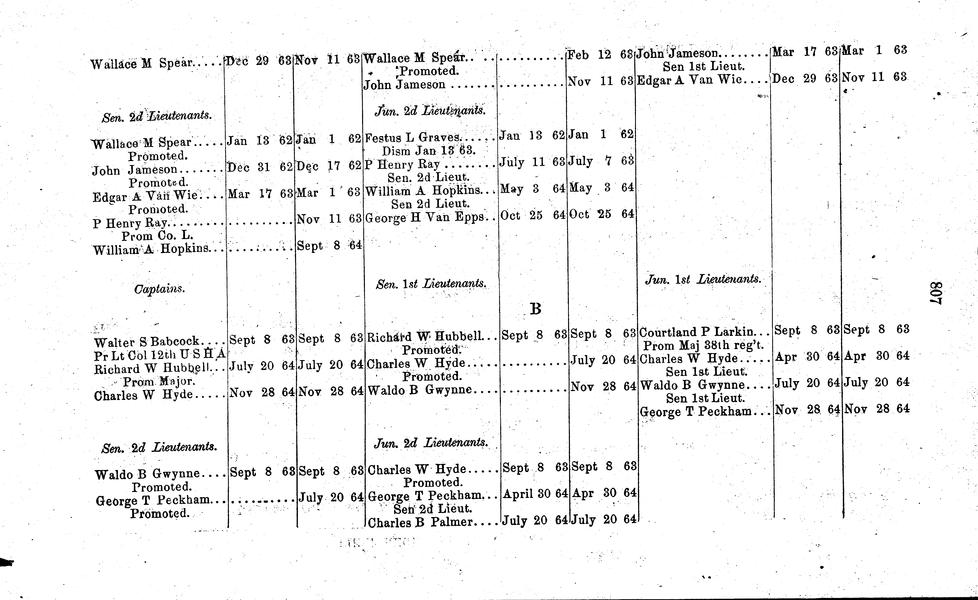 Wallace M Spear..... Dec 29 63 Nov 11 63 Wallace M Spear.. .. .......... Feb 12 63 John Jameson........ Mar 17 63 Mar 1 63
Promoted. Sen 1st Lieut.
John Jameson ....... .......... Nov 11 63 Edgar A Van Wie.... Dec 29 63 Nov 11 63
Sen. 2d Lieutenants. Jun. 2d Lieutenants.
Wallace M Spear..... Jan 13 62 Jan 1 62 Festus L Graves...... Jan 13 62 Jan 1 62
Promoted. Dism Jan 13 63.
John Jameson....... Dec 31 62 Dec 17 62 P Henry Ray ........ July 11 63 July 7 63
Promoted. Sen. 2d Lieut.
Edgar A Van Wie.... Mar 17 63 Mar 1 63 William A Hopkins... May 3 64 May 3 64
Promoted. Sen 2d Lieut.
P Henry Ray......... .......... Nov 11 63 George H Van Epps.. Oct 25 64 Oct 25 64
Prom Co. L.
William A Hopkins... .......... Sept 8 64
Captains. Sen. 1st Lieutenants. Jun. 1st Lieutenants.
B
807
Walter S Babcock.... Sept 8 63 Sept 8 63 Richard W Hubbell... Sept 8 63 Sept 8 63 Courtland P Larkin... Sept 8 63 Sept 8 63
Pr Lt Col 12th U S H A Promoted. Prom Maj 38th reg't.
Richard W Hubbell... July 20 64 July 20 64 Charles W Hyde..... .......... July 20 64 Charles W Hyde..... Apr 30 64 Apr 30 64
Prom Major. Promoted. Sen 1st Lieut.
Charles W Hyde..... Nov 28 64 Nov 28 64 Waldo B Gwynne.... .......... Nov 28 64 Waldo B Gwynne.... July 20 64 July 20 64
Sen 1st Lieut.
George T Peckham... Nov 28 64 Nov 28 64
Sen. 2d Lieutenants. Jun. 2d Lieutenants.
Waldo B Gwynne.... Sept 8 63 Sept 8 63 Charles W Hyde..... Sept 8 63 Sept 8 63
Promoted. Promoted.
George T Peckham... .......... July 20 64 George T Peckham... April 30 64 Apr 30 64
Promoted. Sen 2d Lieut.
Charles B Palmer.... July 20 64 July 20 64